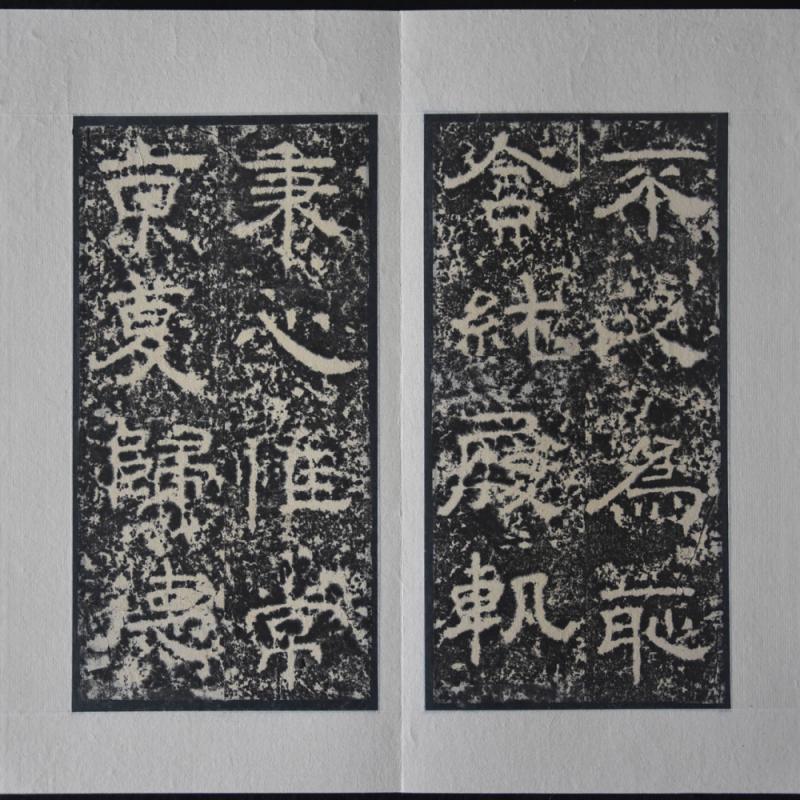 不為恥
含純履軌
秉心惟常
京夏歸德